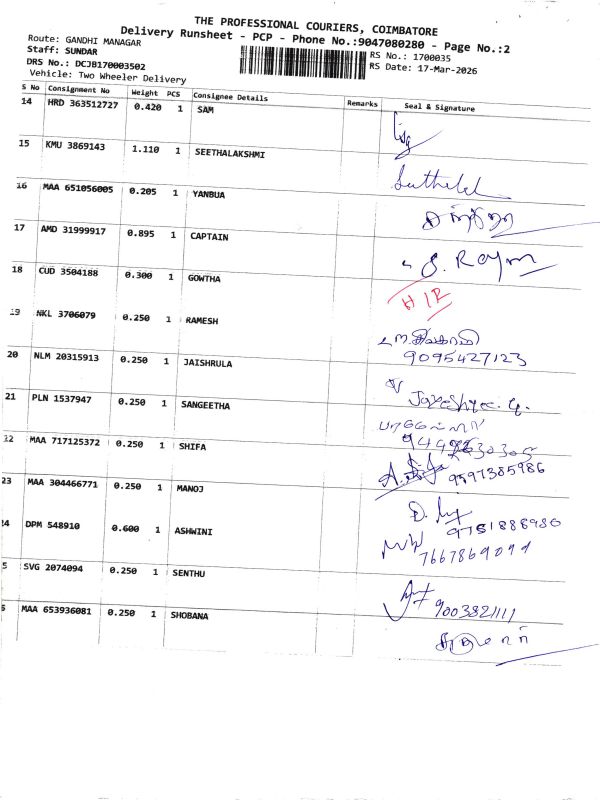 THE PROFESSIONAL COURIERS, COIMBATORE
Delivery Runsheet - PCP - Phone No.:9047080280 - Page No.:2
Route: GANDHI MANAGAR
RS No.: 1700035
Staff: SUNDAR
RS Date: 17-Mar-2026
DRS No.: DCJB170003502
Vehicle: Two Wheeler Delivery
S No Consignment No Weight PCS Consignee Details Remarks Seal & Signature
14 HRD 363512727 0.420 1 SAM
15 KMU 3869143 1.110 1 SEETHALAKSHMI
16 MAA 651056005 0.205 1 YANBUA
17 AMD 31999917 0.895 1 CAPTAIN
18 CUD 3504188 0.300 1 GOWTHA
H/R
19 NKL 3706079 0.250 1 RAMESH
9095427123
20 NLM 20315913 0.250 1 JAISHRULA
21 PLN 1537947 0.250 1 SANGEETHA
12 MAA 717125372 0.250 1 SHIFA
9597385986
23 MAA 304466771 0.250 1 MANOJ
9751888986
4 DPM 548910 0.600 1 ASHWINI
7667869099
5 SVG 2074094 0.250 1 SENTHU
9003821111
5 MAA 653936081 0.250 1 SHOBANA